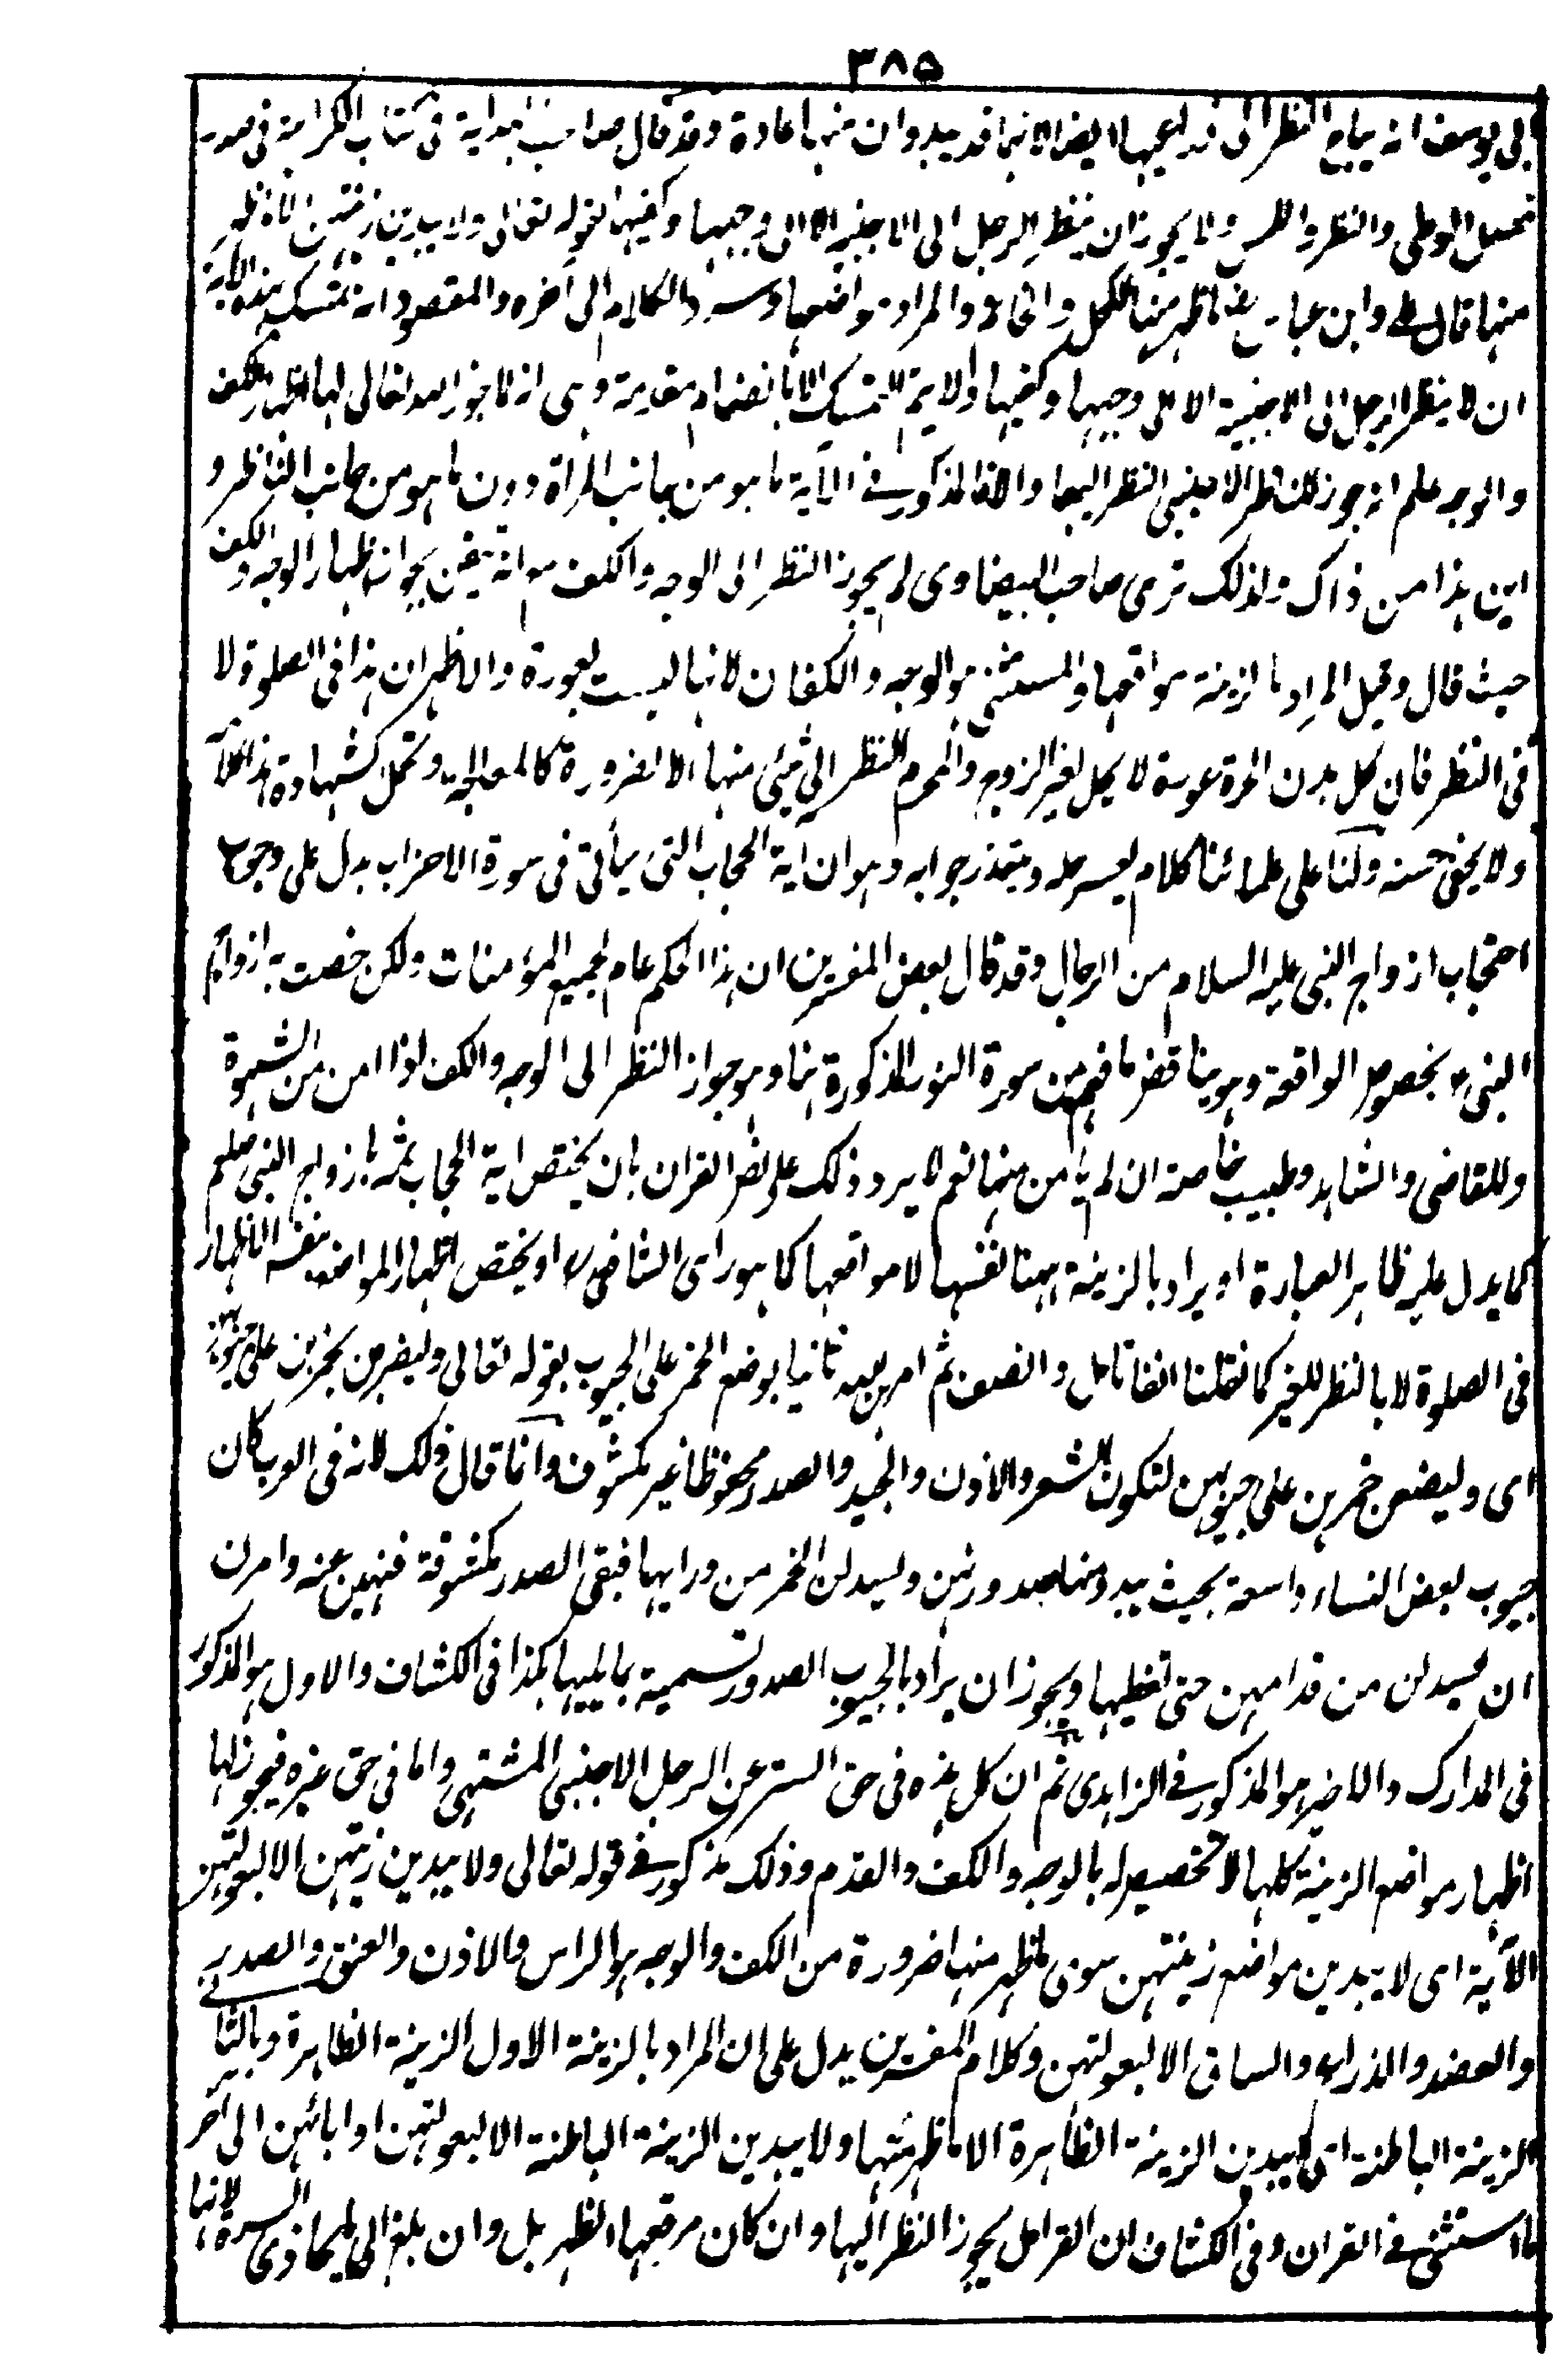 ٣٨٥
ابى يوسف انه يباح النظر الى ذراعيها ايضا لانهما قد يبدوان منها عادة وقد قال صاحب الهداية فى كتاب الكراهية فى صدر
فصل الوطى والنظر واللمس ولا يجوز ان ينظر الرجل الى الاجنبية الا الى وجهها وكفيها لقوله تعالى ولا يبدين زينتهن الا ما ظهر
منها قال على وابن عباس رض ما ظهر منها الكحل والخاتم والمراد مواضعها وسرد الكلام الى آخره والمقصود انه تمسك بهذه الآية
ان لا ينظر الرجل الى الاجنبية الا الى وجهها وكفيها ولا يتم التمسك الا بانضمام مقدمة وهى انه لما جوز الله تعالى لها اظهار الكف
والوجه علم انه جوز للناظر الاجنبى النظر اليهما والا فالمذكور فى الآية ما هو من جانب المرأة دون ما هو من جانب الناظر و
اين هذا من ذاك ولذلك ترى صاحب البيضاوى لم يجوز النظر الى الوجه والكف مع انه تيقن بجواز اظهار الوجه والكف
حيث قال وقيل المراد بالزينة مواقعها والمستثنى هو الوجه والكفان لانها ليست بعورة والاظهر ان هذا فى الصلوة لا
فى النظر فان كل بدن الحرة عورة لا يحل لغير الزوج والمحرم النظر الى شئ منها الا لضرورة كالمعالجة وتحمل الشهادة هذا كلامه
ولا يخفى حسنه ولنا على علمائنا كلام يعسر حله ويتعذر جوابه وهو ان آية الحجاب التى سيأتى فى سورة الاحزاب يدل على وجوب
احتجاب ازواج النبى عليه السلام من الرجال وقد قال بعض المفسرين ان هذا الحكم عام لجميع المؤمنات ولكن خصت به ازواج
النبى ع بخصوص الواقعة وهو يناقض ما فهم من سورة النور المذكورة هنا وهو جواز النظر الى الوجه والكف لو امن من الشهوة
وللقاضى والشاهد وطبيب خاصة ان لم يأمن منها نعم لا يرد ذلك على نص القران بان يختص اية الحجاب ثمه بازواج النبى صلعم
كما يدل عليه ظاهر العبارة او يراد بالزينة ههنا نفسها لا مواقعها كما هو راى الشافعى رح او يختص اظهار المواضع بنفس الاظهار
فى الصلوة لا بالنظر للغير كما نقلنا انفا تامل وانصف ثم امر بعده ثانيا بوضع الخمر على الجيوب بقوله تعالى وليضربن بخمرهن على جيوبهن
اى وليضعن خمرهن على جيوبهن لتكون الشعر والاذن والجيد والصدر محفوظا غير مكشوف وانما قال ذلك لانه فى العرب كان
جيوب بعض النساء واسعة بحيث يبدو منها صدورهن وليسدلن الخمر من ورايها فبقى الصدر مكشوفة فنهين عنه وامرن
ان يسدلن من قدامهن حتى تغطيها ويجوز ان يراد بالجيوب الصدور تسمية بما يليها هكذا فى الكشاف والاول هو المذكور
فى المدارك والاخير هو المذكور فى الزاهدى ثم ان كل هذه فى حق الستر عن الرجل الاجنبى المشتهى واما فى حق غيره فيجوز لها
اظهار مواضع الزينة كلها لا تخصيص له بالوجه والكف والقدم وذلك مذكور فى قوله تعالى ولا يبدين زينتهن الا لبعولتهن
الآية اى لا يبدين مواضع زينتهن سوى ما ظهر منها ضرورة من الكف والوجه هو الراس والاذن والعنق والصدر
والعضد والذراع والساق الا لبعولتهن وكلام المفسرين يدل على ان المراد بالزينة الاول الزينة الظاهرة وبالثانى
الزينة الباطنة اى لا يبدين الزينة الظاهرة الا ما ظهر منها ولا يبدين الزينة الباطنة الا لبعولتهن او ابائهن الى آخر
ما استثنى فى القران وفى الكشاف ان القرامل يجوز النظر اليها وان كان موقعها الظهر بل وان بلغ الى ما يحاذى السرة لانها